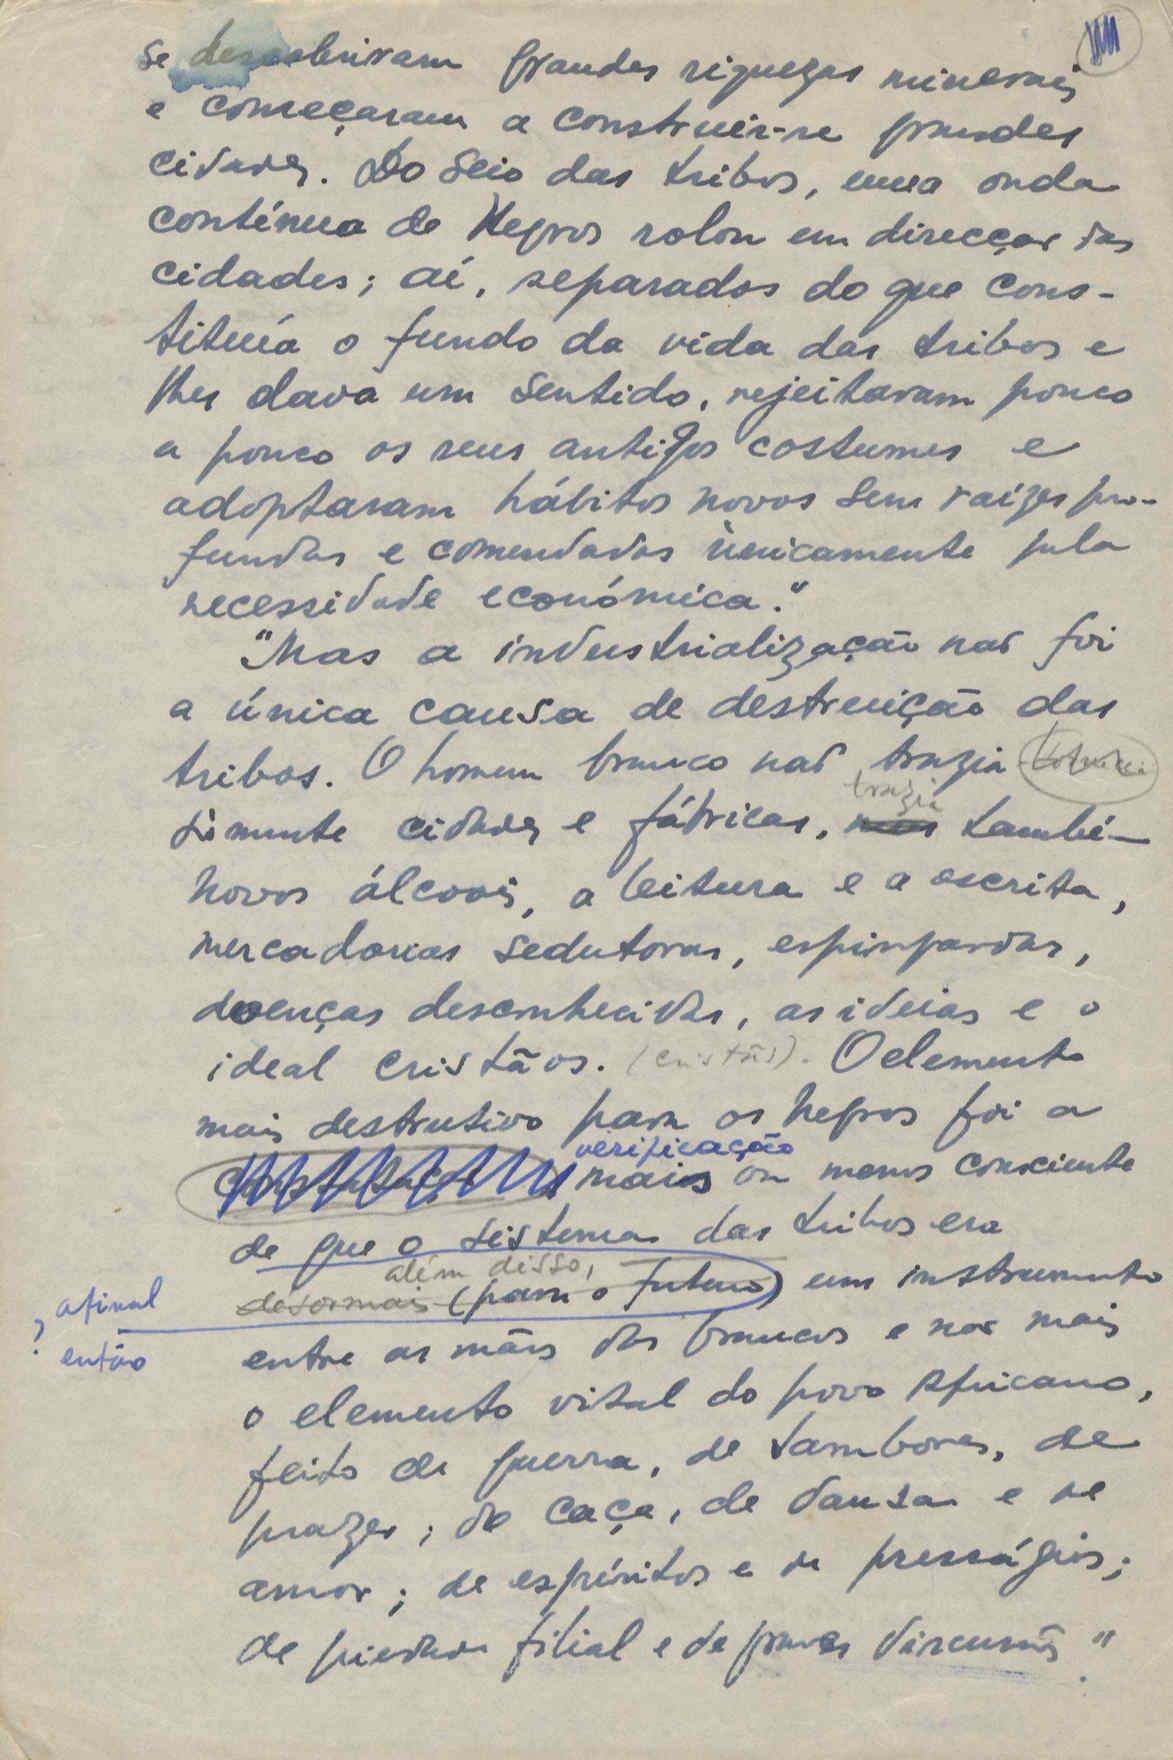 se descobriram grandes riquezas minerais
e começaram a construir-se grandes
cidades. Do seio das tribos, uma onda
contínua de Negros rolou em direcção das
cidades; aí, separados do que cons-
tituía o fundo da vida das tribos e
lhes dava um sentido, rejeitaram pouco
a pouco os seus antigos costumes e
adoptaram hábitos novos sem raízes pro-
fundas e comendados ùnicamente pela
necessidade económica."
"Mas a industrialização não foi
a única causa de destruição das
tribos. O homem branco não trazia
trazia
sòmente cidades e fábricas, mas também
novos álcoois, a leitura e a escrita,
mercadorias sedutoras, espingardas,
doenças desconhecidas, as ideias e o
ideal cristãos. (cristãs). O elemento
mais destrutivo para os negros foi a
verificação
mais ou menos consciente
de que o sistema das tribos era
além disso,
desormais (para o futuro) um instrumento
? afinal
então
entre as mãos dos brancos e não mais
o elemento vital do povo Africano,
feito de guerra, de tambores, de
prazer; de caça, de dansa e de
amor; de espíritos e de presságios;
de piedade filial e de graves discussões."